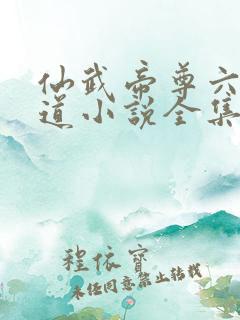 仙武帝尊六
道小说全集
程依宝
未经同意禁止转载